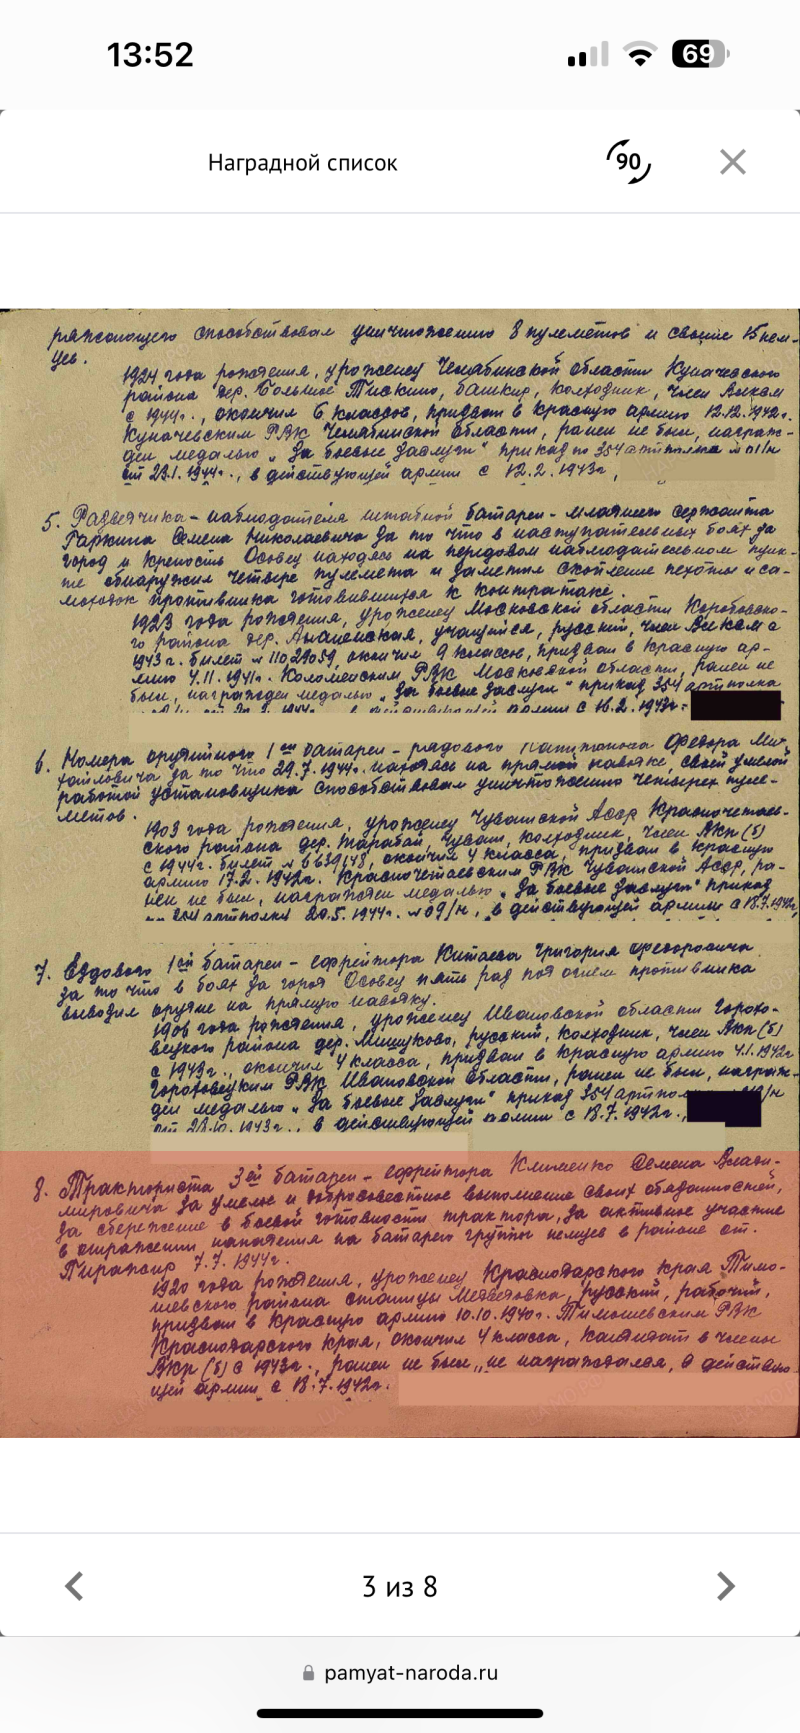 13:52
69
Наградной список
90
ряжающего способствовал уничтожению 8 пулеметов и свыше 15 нем-
цев.
1924 года рождения, уроженец Челябинской области Куначакского
района дер. Большое Тискино, башкир, колхозник, член
с 1944г., окончил 6 классов, призван в Красную армию 12.12.1942г.
Куначевским РВК Челябинской области, ранен не был, награж-
ден медалью „За боевые заслуги" приказ по 354 артполка
от 29.1.1944г., в действующей армии с 12.2.1943г,
5. Разведчика-наблюдателя штабной батареи - младшего сержанта
Гаркина Семена Николаевича за то что в наступательных боях за
город и крепость Осовец находясь на передовом наблюдательном пунк-
те обнаружил четыре пулемета и заметил скопление пехоты и са-
моходок противника готовившихся к контратаке.
1923 года рождения, уроженец Московской области Коробовско-
го района дер. учащийся, русский, член с
1943г. билет № окончил 9 классов, призван в Красную ар-
мию 4.11.1941г. Коломенским РВК Московской области, ранен не
был, награжден медалью „За боевые заслуги" приказ 354 артполка
в действующей армии с 16.2.1943г.
6. Номера орудийного 1ой батареи - рядового Федора Ми-
хайловича за то что 29.7.1944г. находясь на прямой наводке, своей умелой
работой установщика способствовал уничтожению четырех пуле-
метов.
1903 года рождения, уроженец Чувашской Асср Красночетаев-
ского района дер. Тарабай, чуваш, колхозник, член Вкп(б)
с 1944г. билет № окончил 4 класса, призван в Красную
армию 17.2.1942г. Красночетаевским РВК Чувашской Асср, ра-
нен не был, награжден медалью „За боевые заслуги" приказ
артполка 20.5.1944г. №09/н, в действующей армии с 18.7.1942г,
7. Ездового 1ой батареи - ефрейтора Китаева Григория Федоровича
за то что в боях за город Осовец пять раз под огнем противника
выводил орудие на прямую наводку.
1906 года рождения, уроженец Ивановской области Горохо-
вецкого района дер. Мишуково, русский, колхозник, член Вкп(б)
с 1943г., окончил 4 класса, призван в Красную армию 4.1.1942г
Гороховецким РВК Ивановской области, ранен не был, награж-
ден медалью „За боевые заслуги" приказ 354 /н
от 28.10.1943г., в действующей армии с 18.7.1942г.,
8. Тракториста 3ей батареи - ефрейтора Клименко Семена Влади-
мировича за умелое и добросовестное выполнение своих обязанностей,
за сбережение в боевой готовности трактора, за активное участие
в отражении нападения на батарею группы немцев в районе ст.
7.7.1944г.
1920 года рождения, уроженец Краснодарского края Тимо-
шевского района станицы Медведовка, русский, рабочий,
призван в Красную армию 10.10.1940г. Тимошевским РВК
Краснодарского края, окончил 4 класса, кандидат в члены
Вкп(б) с 1943г., ранен не был, не награждался, в действую-
щей армии с 18.7.1942г.
3 из 8
pamyat-naroda.ru